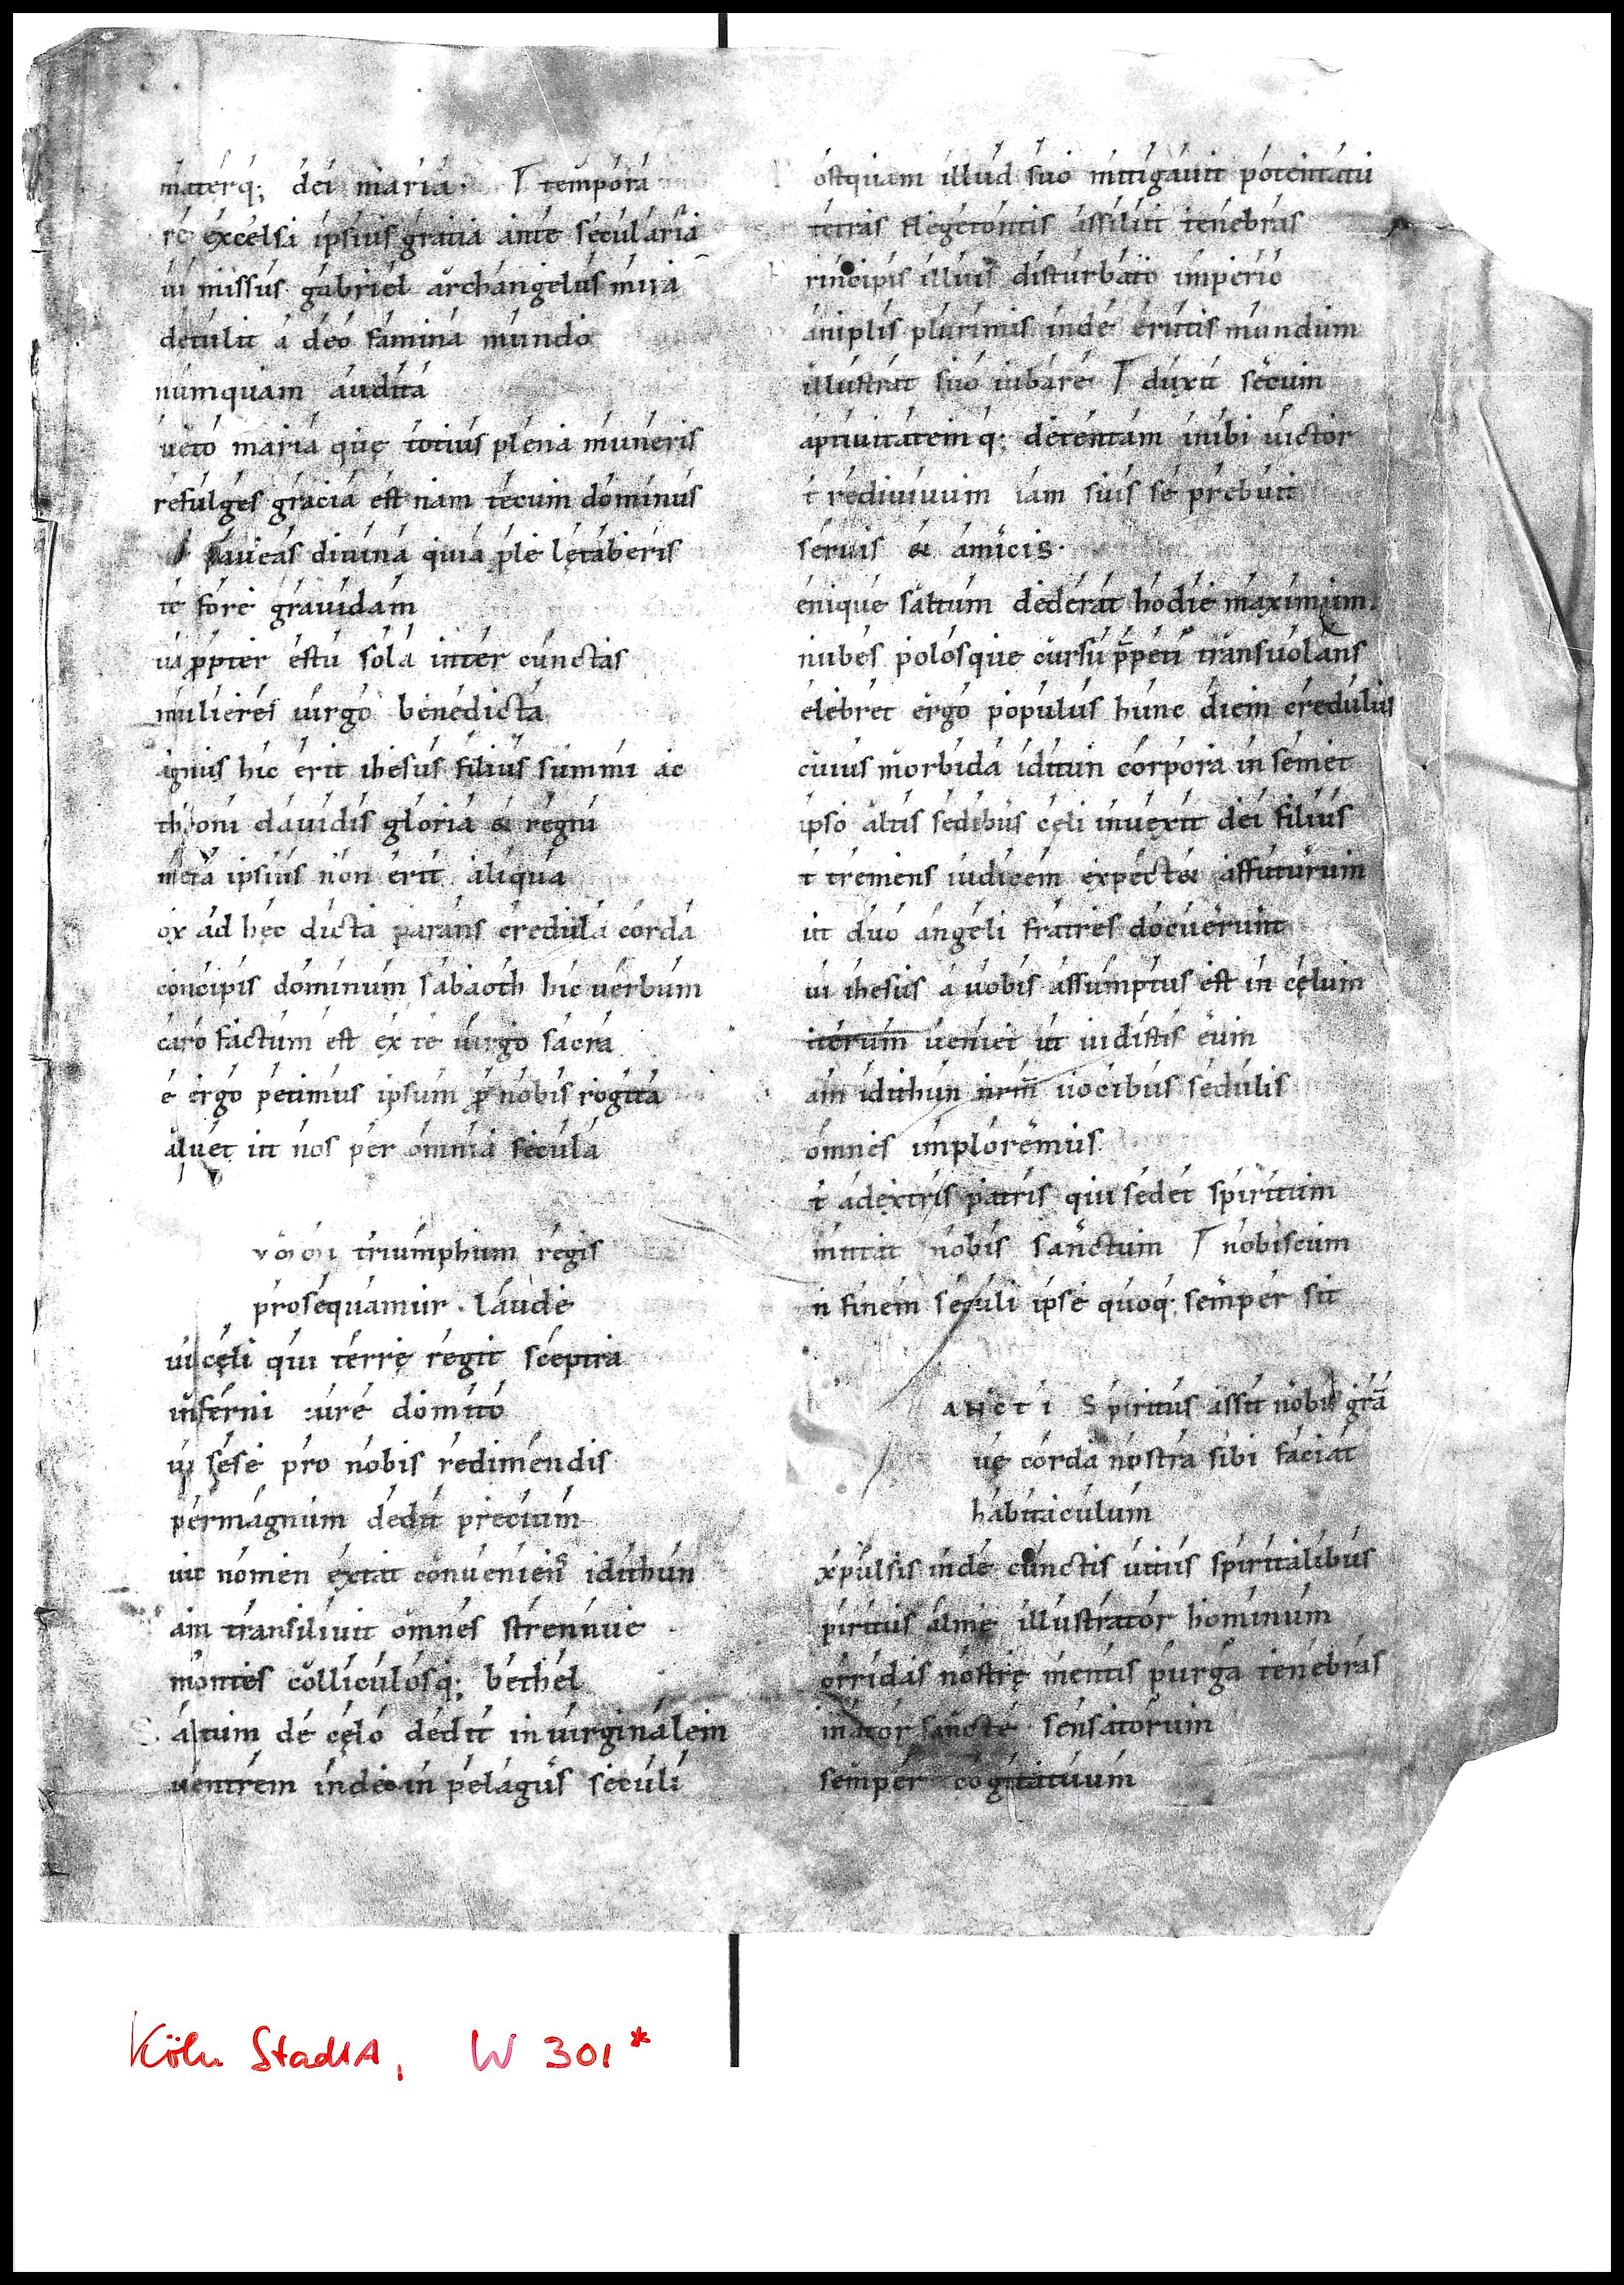 materq; dei maria. T tempora
re excelsi ipsius gratia ante secularia
ui missus gabriel archangelus mira
detulit a deo famina mundo
numquam audita
ueto maria quę totius plena muneris
refulges gracia est nam tecum dominus
paueas diuina quia ple lętaberis
te fore grauidam
ui ꝓpter es tu sola inter cunctas
mulieres uirgo benedicta
agnus hic erit ihesus filius summi ac
throni dauidis gloria & regni
meta ipsius non erit aliqua
ox ad hęc dicta parans credula corda
concipis dominum sabaoth hic uerbum
caro factum est ex te uirgo sacra
e ergo petimus ipsum ꝓ nobis rogita
aluet ut nos per omnia secula
triumphum regis
prosequamur. laude
ui cęli qui terrę regit sceptra
inferni iure domito
ui sese pro nobis redimendis
permagnum dedit precium
uic nomen extat conueniens idithun
am transiliuit omnes strennue
montes colliculosq; bethel
S altum de cęlo dedit in uirginalem
uentrem inde in pelagus seculi
ostquam illud suo mitigauit potentatu
tetras flegetontis assiliit tenebras
rincipis illius disturbato imperio
aniplis plurimis inde erutis mundum
illustrat suo iubare T duxit secum
aptiuitatem q; detentam inibi uictor
t rediuiuum iam suis se prebuit
seruis & amicis.
enique saltum dederat hodie maximum.
nubes polosque cursu p̄peti transuolans
elebret ergo populus hunc diem credulus
cuius morbida iditun corpora in semet
ipso altis sedibus cęli inuexit dei filius
t tremens iudicem expectet affuturum
ut duo angeli fratres docuerunt
ui ihesus a uobis assumptus est in cęlum
iterum ueniet ut uidistis eum
am idithun nrm̄ uocibus sedulis
omnes imploremus
t adextris patris qui sedet spiritum
mittat nobis sanctum T nobiscum
n finem seculi ipse quoq; semper sit
S ANCTI Spiritus assit nobis grā
uę corda nostra sibi faciat
habitaculum
xpulsis inde cunctis uitiis spiritalibus
piritus alme illustrator hominum
orridas nostrę mentis purga tenebras
mator sancte sensatorum
semper cogitatuum
Köln StadtA, W 301*